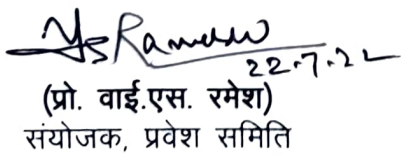 YS Ramesh
22.7.22
(प्रो. वाई.एस. रमेश)
संयोजक, प्रवेश समिति